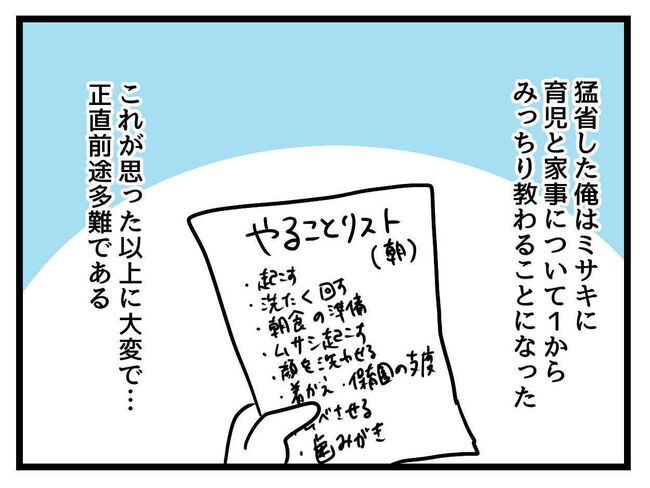 猛省した俺はミサキに
育児と家事について1から
みっちり教わることになった
これが思った以上に大変で…
正直前途多難である
やることリスト
(朝)
・起こす
・洗たく回す
・朝食の準備
・ムサシ起こす
・顔を洗わせる
・着がえ・保育園の支度
べさせる
・歯みがき